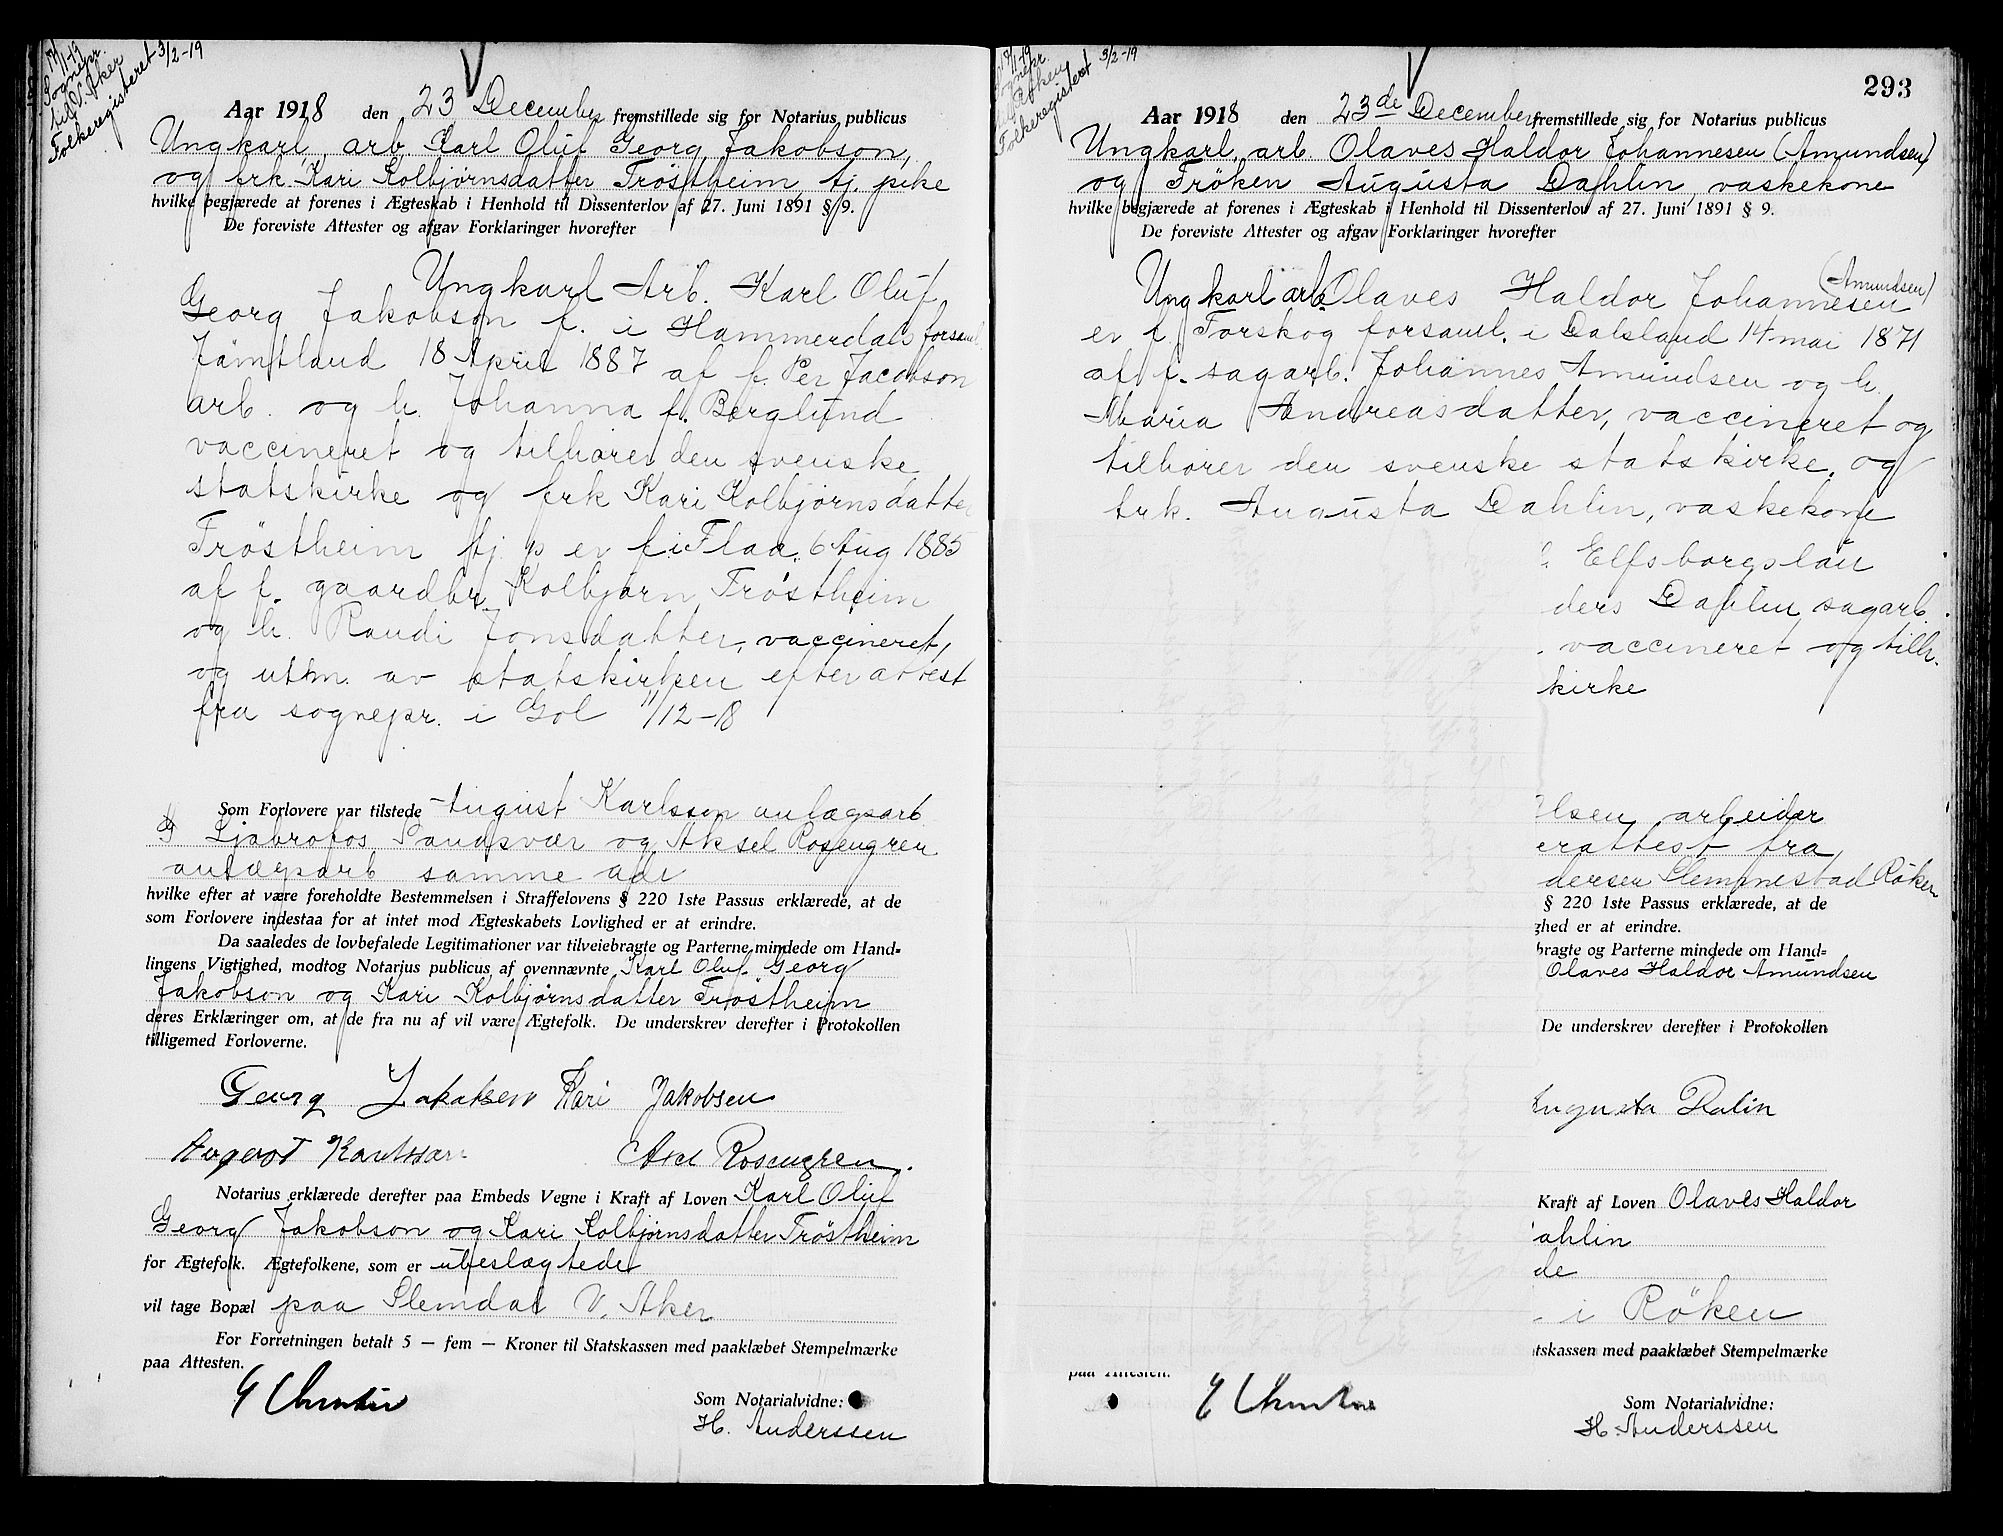 17/1-19
Sognepr.
til V. Aker
Folkeregisteret 3/2-19
Aar 1918 den 23 December fremstillede sig for Notarius publicus
Ungkarl, arb. Karl Oluf Georg Jakobson,
og frk. Kari Kolbjørnsdatter Tröstheim, tj. pike
hvilke begjærede at forenes i Ægteskab i Henhold til Dissenterlov af 27. Juni 1891 § 9.
De foreviste Attester og afgav Forklaringer hvorefter
Ungkarl Arb. Karl Oluf
Georg Jakobson f. i Hammerdals forsaml.
Jämtland 18 April 1887 af f. Per Jacobson
arb. og h. Johanna f. Berglund
vaccineret og tilhører den svenske
statskirke og frk Kari Kolbjørnsdatter
Tröstheim tj. p er f. i Flaa. 6 Aug 1885
af f. gaardbr. Kolbjørn Tröstheim
og h. Randi Jonsdatter, vaccineret,
og utm. av statskirken efter attest
fra sognepr. i Gol 11/12-18
Som Forlovere var tilstede August Karlsson anlægsarb
Ljabrofos, Sandsvær og Aksel Rosengren
anlægsarb samme adr
hvilke efter at være foreholdte Bestemmelsen i Straffelovens § 220 1ste Passus erklærede, at de
som Forlovere indestaa for at intet mod Ægteskabets Lovlighed er at erindre.
Da saaledes de lovbefalede Legitimationer var tilveiebragte og Parterne mindede om Hand=
lingens Vigtighed, modtog Notarius publicus af ovennævnte Karl Oluf Georg
Jakobson og Kari Kolbjørnsdatter Tröstheim
deres Erklæringer om, at de fra nu af vil være Ægtefolk. De underskrev derefter i Protokollen
tilligemed Forloverne.
Georg Jakobsen Kari Jakobsen
August Karlsson Axel Rosengren.
Notarius erklærede derefter paa Embeds Vegne i Kraft af Loven Karl Oluf
Georg Jakobson og Kari Kolbjørnsdatter Tröstheim
for Ægtefolk. Ægtefolkene, som er ubeslægtede
vil tage Bopæl paa Slemdal V. Aker
For Forretningen betalt 5 — fem — Kroner til Statskassen med paaklæbet Stempelmærke
paa Attesten.
Som Notarialvidne:
H. Anderssen
17/1-19
Sognepr.
Røken
Folkeregisteret 3/2-19
293
Aar 1918 den 23de December fremstillede sig for Notarius publicus
Ungkarl, arb. Olaves Haldor Johannesen (Amundsen)
og Fröken Augusta Dahlin, vaskekone
hvilke begjærede at forenes i Ægteskab i Henhold til Dissenterlov af 27. Juni 1891 § 9.
De foreviste Attester og afgav Forklaringer hvorefter
(Amundsen)
Ungkarl arb. Olaves Haldor Johannesen
er f. Torskog forsaml. i Dalsland 14 mai 1871
af f. sagarb. Johannes Amundsen og h.
Maria Andreasdatter, vaccineret og
tilhører den svenske statskirke. og
frk. Augusta Dahlin, vaskekone
Elfsborgslän
ders Dahlin sagarb.
vaccineret og tilh.
kirke
lsen arbeider
erattest fra
dersen Slemmestad Røken
§ 220 1ste Passus erklærede, at de
ghed er at erindre.
bragte og Parterne mindede om Hand=
Olaves Haldor Amundsen
De underskrev derefter i Protokollen
Augusta Dalin
Kraft af Loven Olaves Haldor
ahlin
de
i Røken
tskassen med paaklæbet Stempelmærke
paa Attesten.
Som Notarialvidne:
H. Anderssen